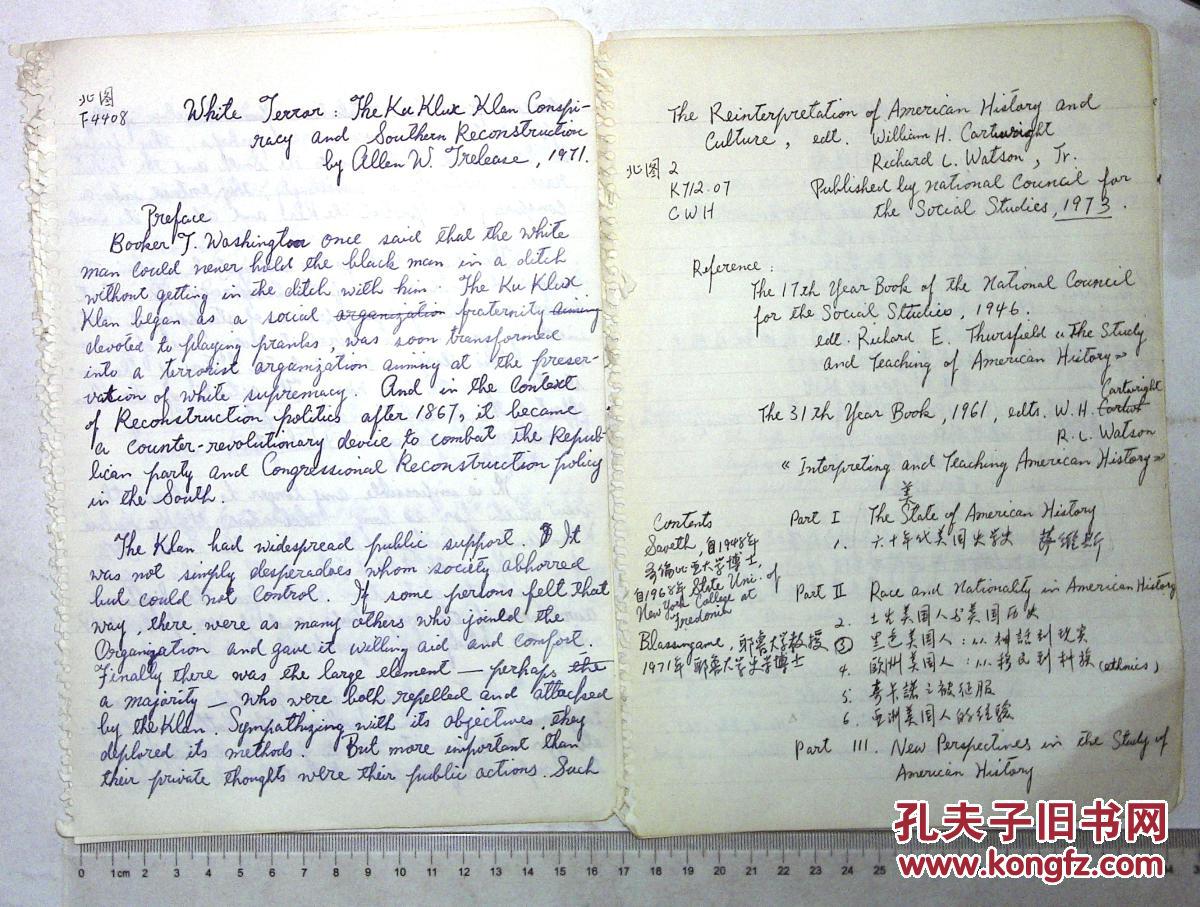 北图
F4408
White Terror : The Ku Klux Klan Conspi-
racy and Southern Reconstruction
by Allen W. Trelease, 1971.
Preface
Booker T. Washington once said that the white
man could never hold the black man in a ditch
without getting in the ditch with him. The Ku Klux
Klan began as a social organization fraternity aiming
devoted to playing pranks, was soon transformed
into a terrorist organization aiming at the preser-
vation of white supremacy. And in the context
of Reconstruction politics after 1867, it became
a counter-revolutionary device to combat the Repub-
lican party and Congressional Reconstruction policy
in the South.
The Klan had widespread public support. It
was not simply desperadoes whom society abhorred
but could not control. If some persons felt that
way, there were as many others who joined the
Organization and gave it willing aid and comfort.
Finally there was the large element — perhaps the
a majority — who were both repelled and attacked
by the Klan. Sympathizing with its objectives, they
deplored its methods. But more important than
their private thoughts were their public actions. Such
The Reinterpretation of American History and
Culture, edt. William H. Cartwright
Richard L. Watson, Jr.
北图 2
K712.07
CWH
Published by national Council for
the Social Studies, 1973.
Reference :
The 17th Year Book of the National Council
for the Social Studies, 1946.
edt. Richard E. Thursfield «The Study
and Teaching of American History»
The 31th Year Book, 1961, edts. W.H. Cartwright
R.L. Watson
«Interpreting and Teaching American History»
美
Part I The State of American History
1. 六十年代美国史学史 萨维斯
Contents
Saveth, 自1948年
哥倫比亚大学博士,
自1968年 State Uni. of
New York College at
Fredonia
Blassingame, 耶魯大学教授
1971年 耶魯大学史学博士
Part II Race and Nationality in American History
2. 土先美国人与美国历史
3 黑色美国人:从神話到现实
4. 欧洲美国人:从移民到种族 (ethnics)
5. 奇卡諾之被征服
6. 亚洲美国人的经验
Part III. New Perspectives in the Study of
American History
0 1cm 2 3 4 5 6 7 8 9 10 11 12 13 14 15 16 17 18 19 20 21 22 23 24 25
孔夫子旧书网
www.kongfz.com